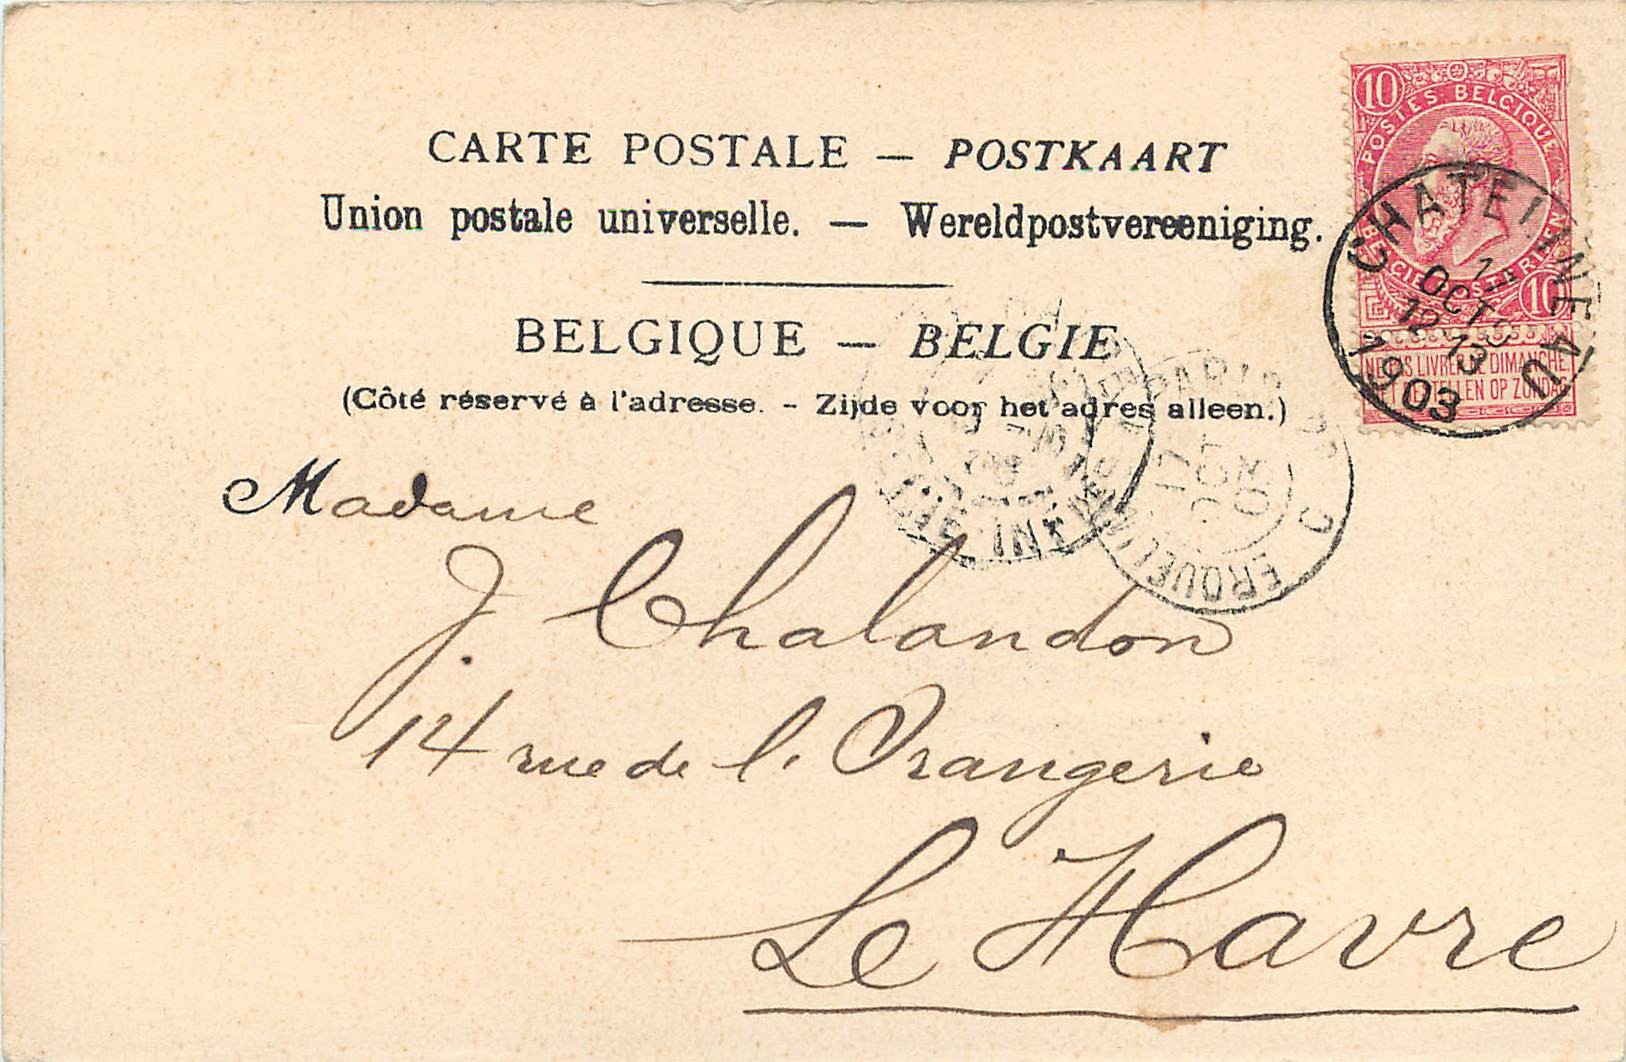 CARTE POSTALE — POSTKAART
Union postale universelle. — Wereldpostvereeniging.
BELGIQUE — BELGIE
(Côté réservé à l'adresse. - Zijde voor het adres alleen.)
10
POSTES BELGIQUE
BELGIE POSTERIJEN
10
NE PAS LIVRER LE DIMANCHE
NIET BESTELLEN OP ZONDAG
CHATELINEAU
OCT
12-13
1903
PARIS
ERQUELINES
17
OCT
03
Madame
J. Chalandon
14 rue de l'Orangerie
Le Havre